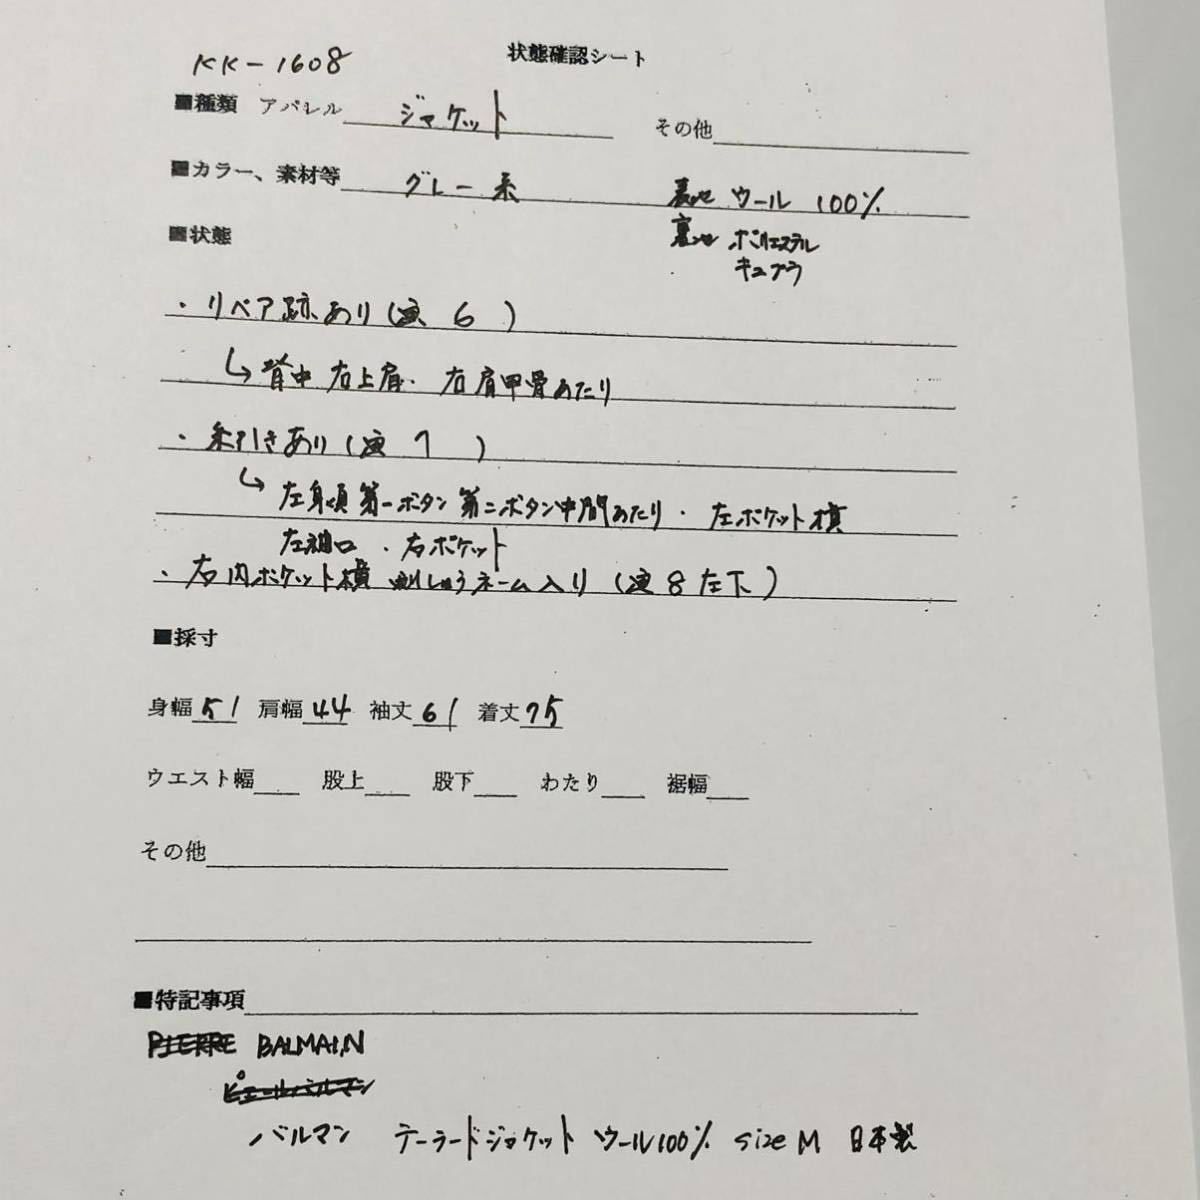 KK-1608
状態確認シート
■種類 アパレル ジャケット その他
■カラー、素材等 グレー系 表地 ウール 100%
■状態 裏地 ポリエステル
キュプラ
・リペア跡あり(画 6 )
↳ 背中 右上肩・右肩甲骨あたり
・糸引きあり(画 7 )
↳ 左身頃 第一ボタン 第二ボタン中間あたり・左ポケット横
左袖口・右ポケット
・右内ポケット横 刺しゅうネーム入り (画 8 左下 )
■採寸
身幅 51 肩幅 44 袖丈 61 着丈 75
ウエスト幅 股上 股下 わたり 裾幅
その他
■特記事項
PIERRE BALMAIN
ピエールバルマン
バルマン テーラードジャケット ウール100% size M 日本製